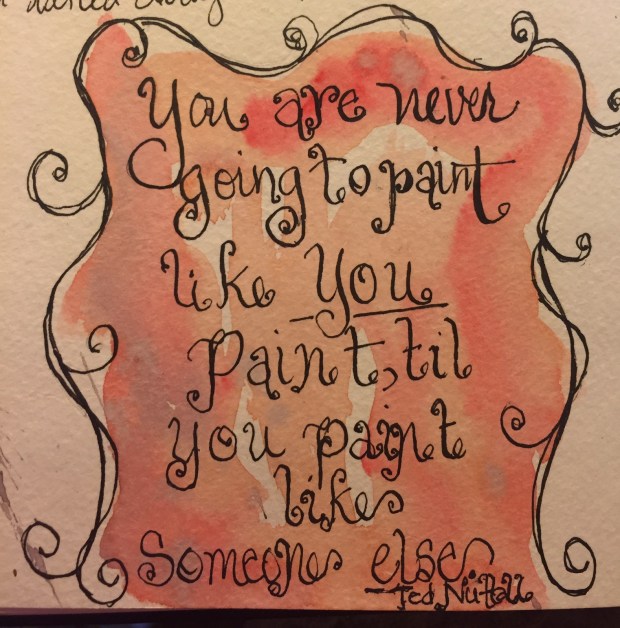 You are never
going to paint
like You
Paint, til
you paint
like
Someone else.
- Ted Nuttall